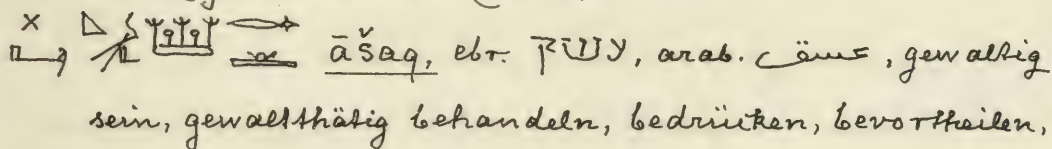 āšaq, ebr. עשק, arab. عسق, gewaltig
sein, gewaltthätig behandeln, bedrücken, bevortheilen,